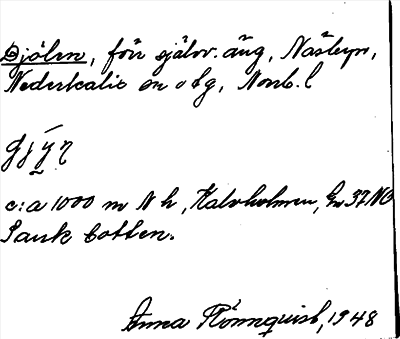 Djölen, för självr. äng, Näsbyn,
Nederkalix sn o tg, Norrb. l
c:a 1000 m N h, Kalvholmen, Gw 37 NO
Sank botten.
Anna Rönnquist, 1948